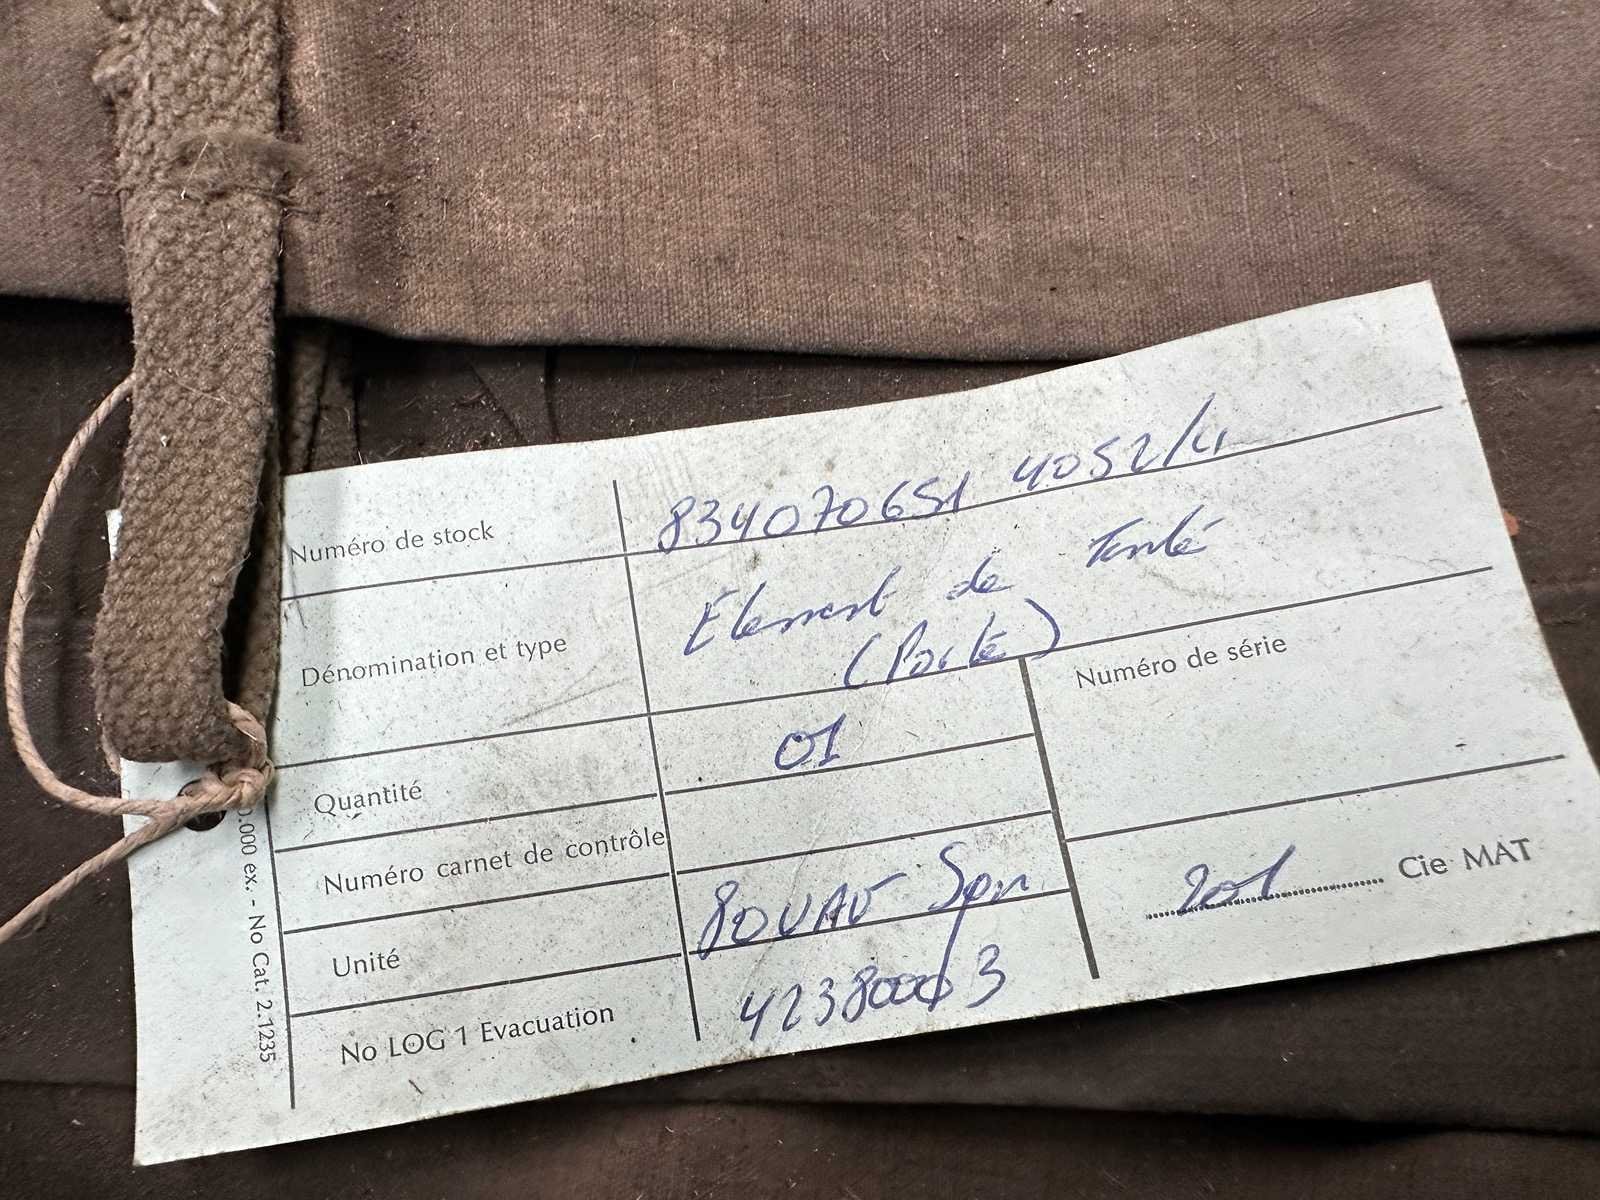 Numéro de stock 834070651 4052/4
Dénomination et type Élement de Tente
(Porte)
Quantité 01
Numéro de série
Numéro carnet de contrôle
Unité 80UAV Spn
201 Cie MAT
No LOG 1 Evacuation 42380003
0.000 ex. - No Cat. 2.1235